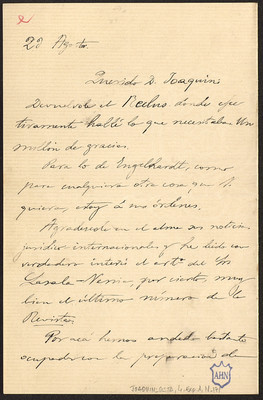 28 Agosto.
Querido D. Joaquin:
Devuelvole el Reclus donde efec
tivamente hallé lo que necesitaba. Un
millón de gracias.
Para lo de Engelhardt, como
para cualquiera otra cosa que V.
quiera, estoy á sus órdenes.
Agradezcole en el alma sus noticias
jurídico internacionales, y he leido con
verdadero interés el artº del Sr
Lasala, por cierto, muy
bien el último número de la
Revista.
Por acá hemos andado bastante
ocupados con la preparación de
AHN
JOAQUIN COSTA,